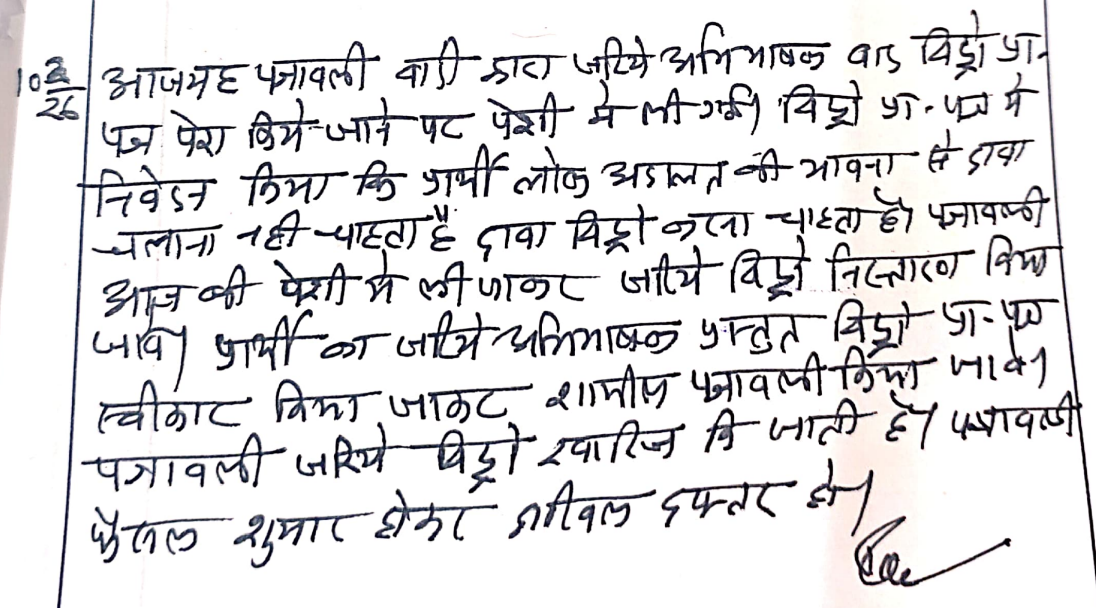 10 2/26 आज यह पत्रावली वादी द्वारा जरिये अभिभाषक वाद विड्रो प्रा.
पत्र पेश किये जाने पर पेशी मे ली गई। विड्रो प्रा. पत्र मे
निवेदन किया कि प्रार्थी लोक अदालत की भावना से दावा
चलाना नही चाहता है दावा विड्रो करना चाहता है। पत्रावली
आज की पेशी मे ली जाकर जरिये विड्रो निस्तारण किया
जावे। प्रार्थी का जरिये अभिभाषक प्रस्तुत विड्रो प्रा-पत्र
स्वीकार किया जाकर शामील पत्रावली किया जावे।
पत्रावली जरिये विड्रो खारिज कि जाती है। पत्रावली
फैसल शुमार होकर दाखिल दफ्तर हो।